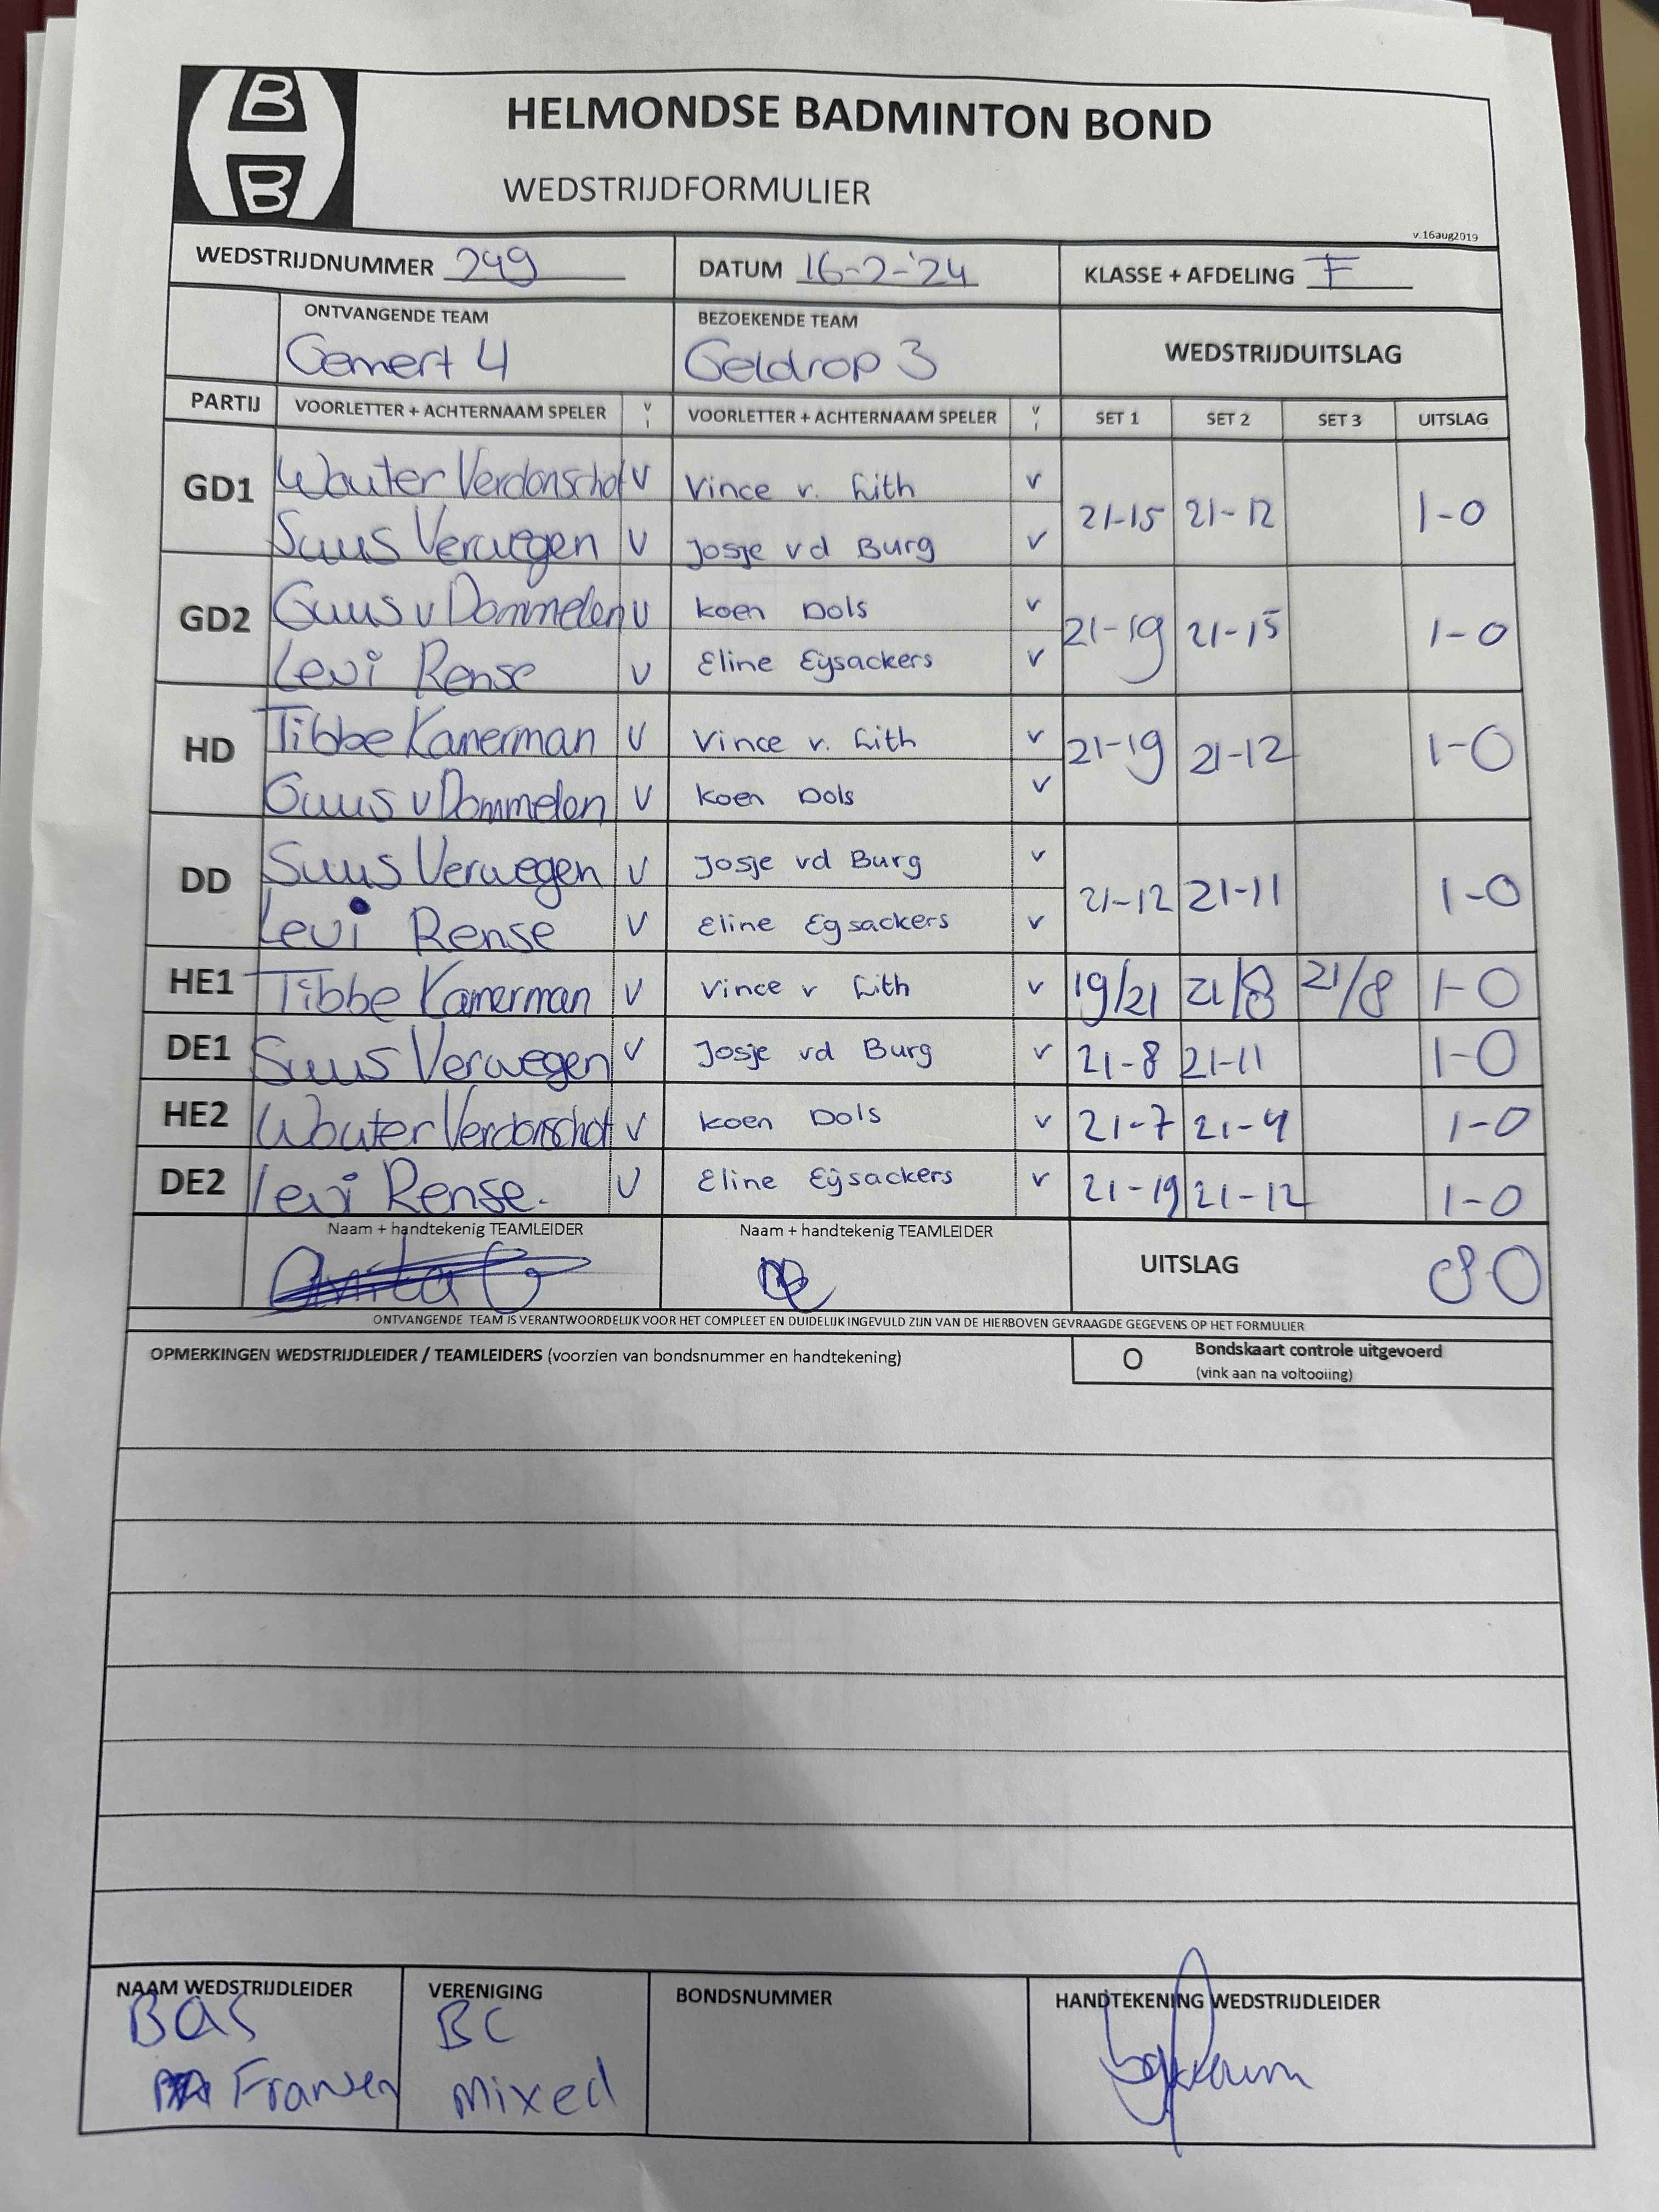 B
B
HELMONDSE BADMINTON BOND
WEDSTRIJDFORMULIER
v.16aug2019
WEDSTRIJDNUMMER 249 DATUM 16-2-'24 KLASSE + AFDELING F
ONTVANGENDE TEAM BEZOEKENDE TEAM WEDSTRIJDUITSLAG
Gemert 4 Geldrop 3
PARTIJ VOORLETTER + ACHTERNAAM SPELER V I VOORLETTER + ACHTERNAAM SPELER V I SET 1 SET 2 SET 3 UITSLAG
GD1 Wouter Verdonschot V Vince v. Lith v 21-15 21-12 1-0
Suus Verwegen V Josje vd Burg v
GD2 Guus v Dommelen V Koen Dols v 21-19 21-15 1-0
Levi Rense V Eline Eijsackers v
HD Tibbe Kamerman V Vince v. Lith v 21-19 21-12 1-0
Guus v Dommelen V Koen Dols v
DD Suus Verwegen V Josje vd Burg v 21-12 21-11 1-0
Levi Rense V Eline Eijsackers v
HE1 Tibbe Kamerman V Vince v Lith v 19/21 21/8 21/8 1-0
DE1 Suus Verwegen V Josje vd Burg v 21-8 21-11 1-0
HE2 Wouter Verdonschot V Koen Dols v 21-7 21-4 1-0
DE2 Levi Rense. V Eline Eijsackers v 21-19 21-12 1-0
Naam + handtekenig TEAMLEIDER Naam + handtekenig TEAMLEIDER UITSLAG 8 0
ONTVANGENDE TEAM IS VERANTWOORDELIJK VOOR HET COMPLEET EN DUIDELIJK INGEVULD ZIJN VAN DE HIERBOVEN GEVRAAGDE GEGEVENS OP HET FORMULIER
OPMERKINGEN WEDSTRIJDLEIDER / TEAMLEIDERS (voorzien van bondsnummer en handtekening) O Bondskaart controle uitgevoerd
(vink aan na voltooiing)
NAAM WEDSTRIJDLEIDER VERENIGING BONDSNUMMER HANDTEKENING WEDSTRIJDLEIDER
Bas BC
Fransen Mixed